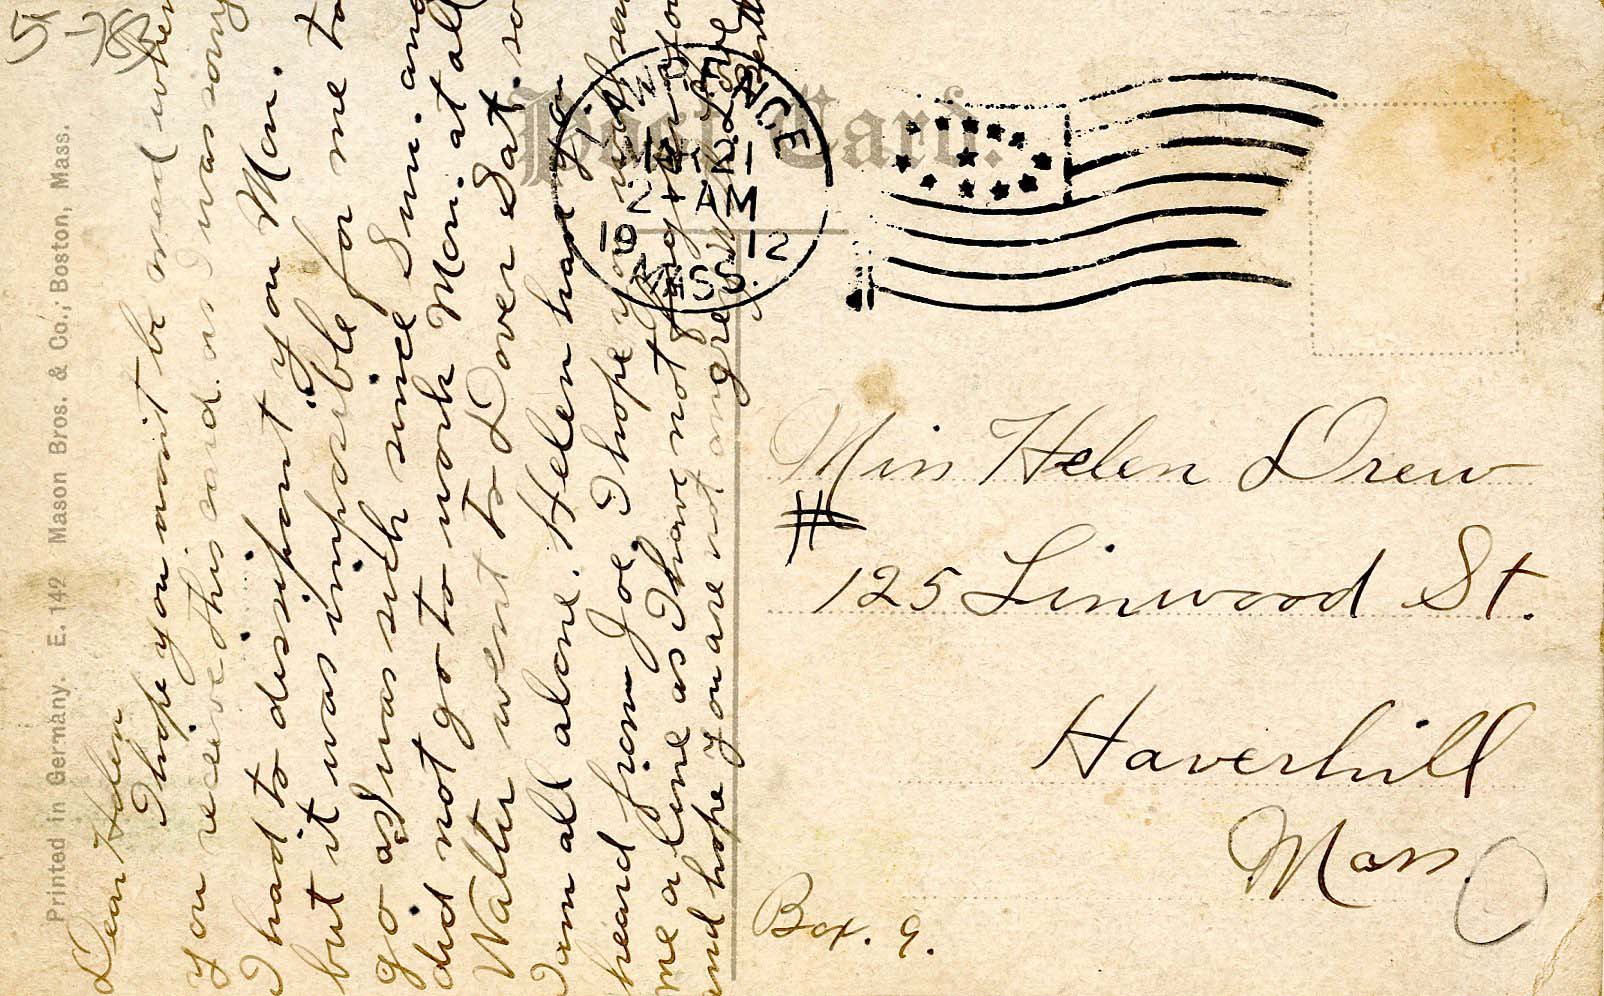 Dear Helen
I hope you wont be mad when
you receive this card as I was sorry
I had to dissipont you Mon.
but it was impossible for me to
go as I was sick since Sun. and
did not go to work Mon. at all
Walter went to Dover Sat. so
I am all alone. Helen have you
heard from Joe. I hope you will sen
me a line as I have not forgot you
and hope you are not angre with
Love
Post Card.
LAWRENCE
2 - AM
10
12
MASS.
Miss Helen Drew
# 125 Linwood St.
Haverhill
Mass.
Box. 9.
Printed in Germany. E. 142 Mason Bros. & Co., Boston, Mass.